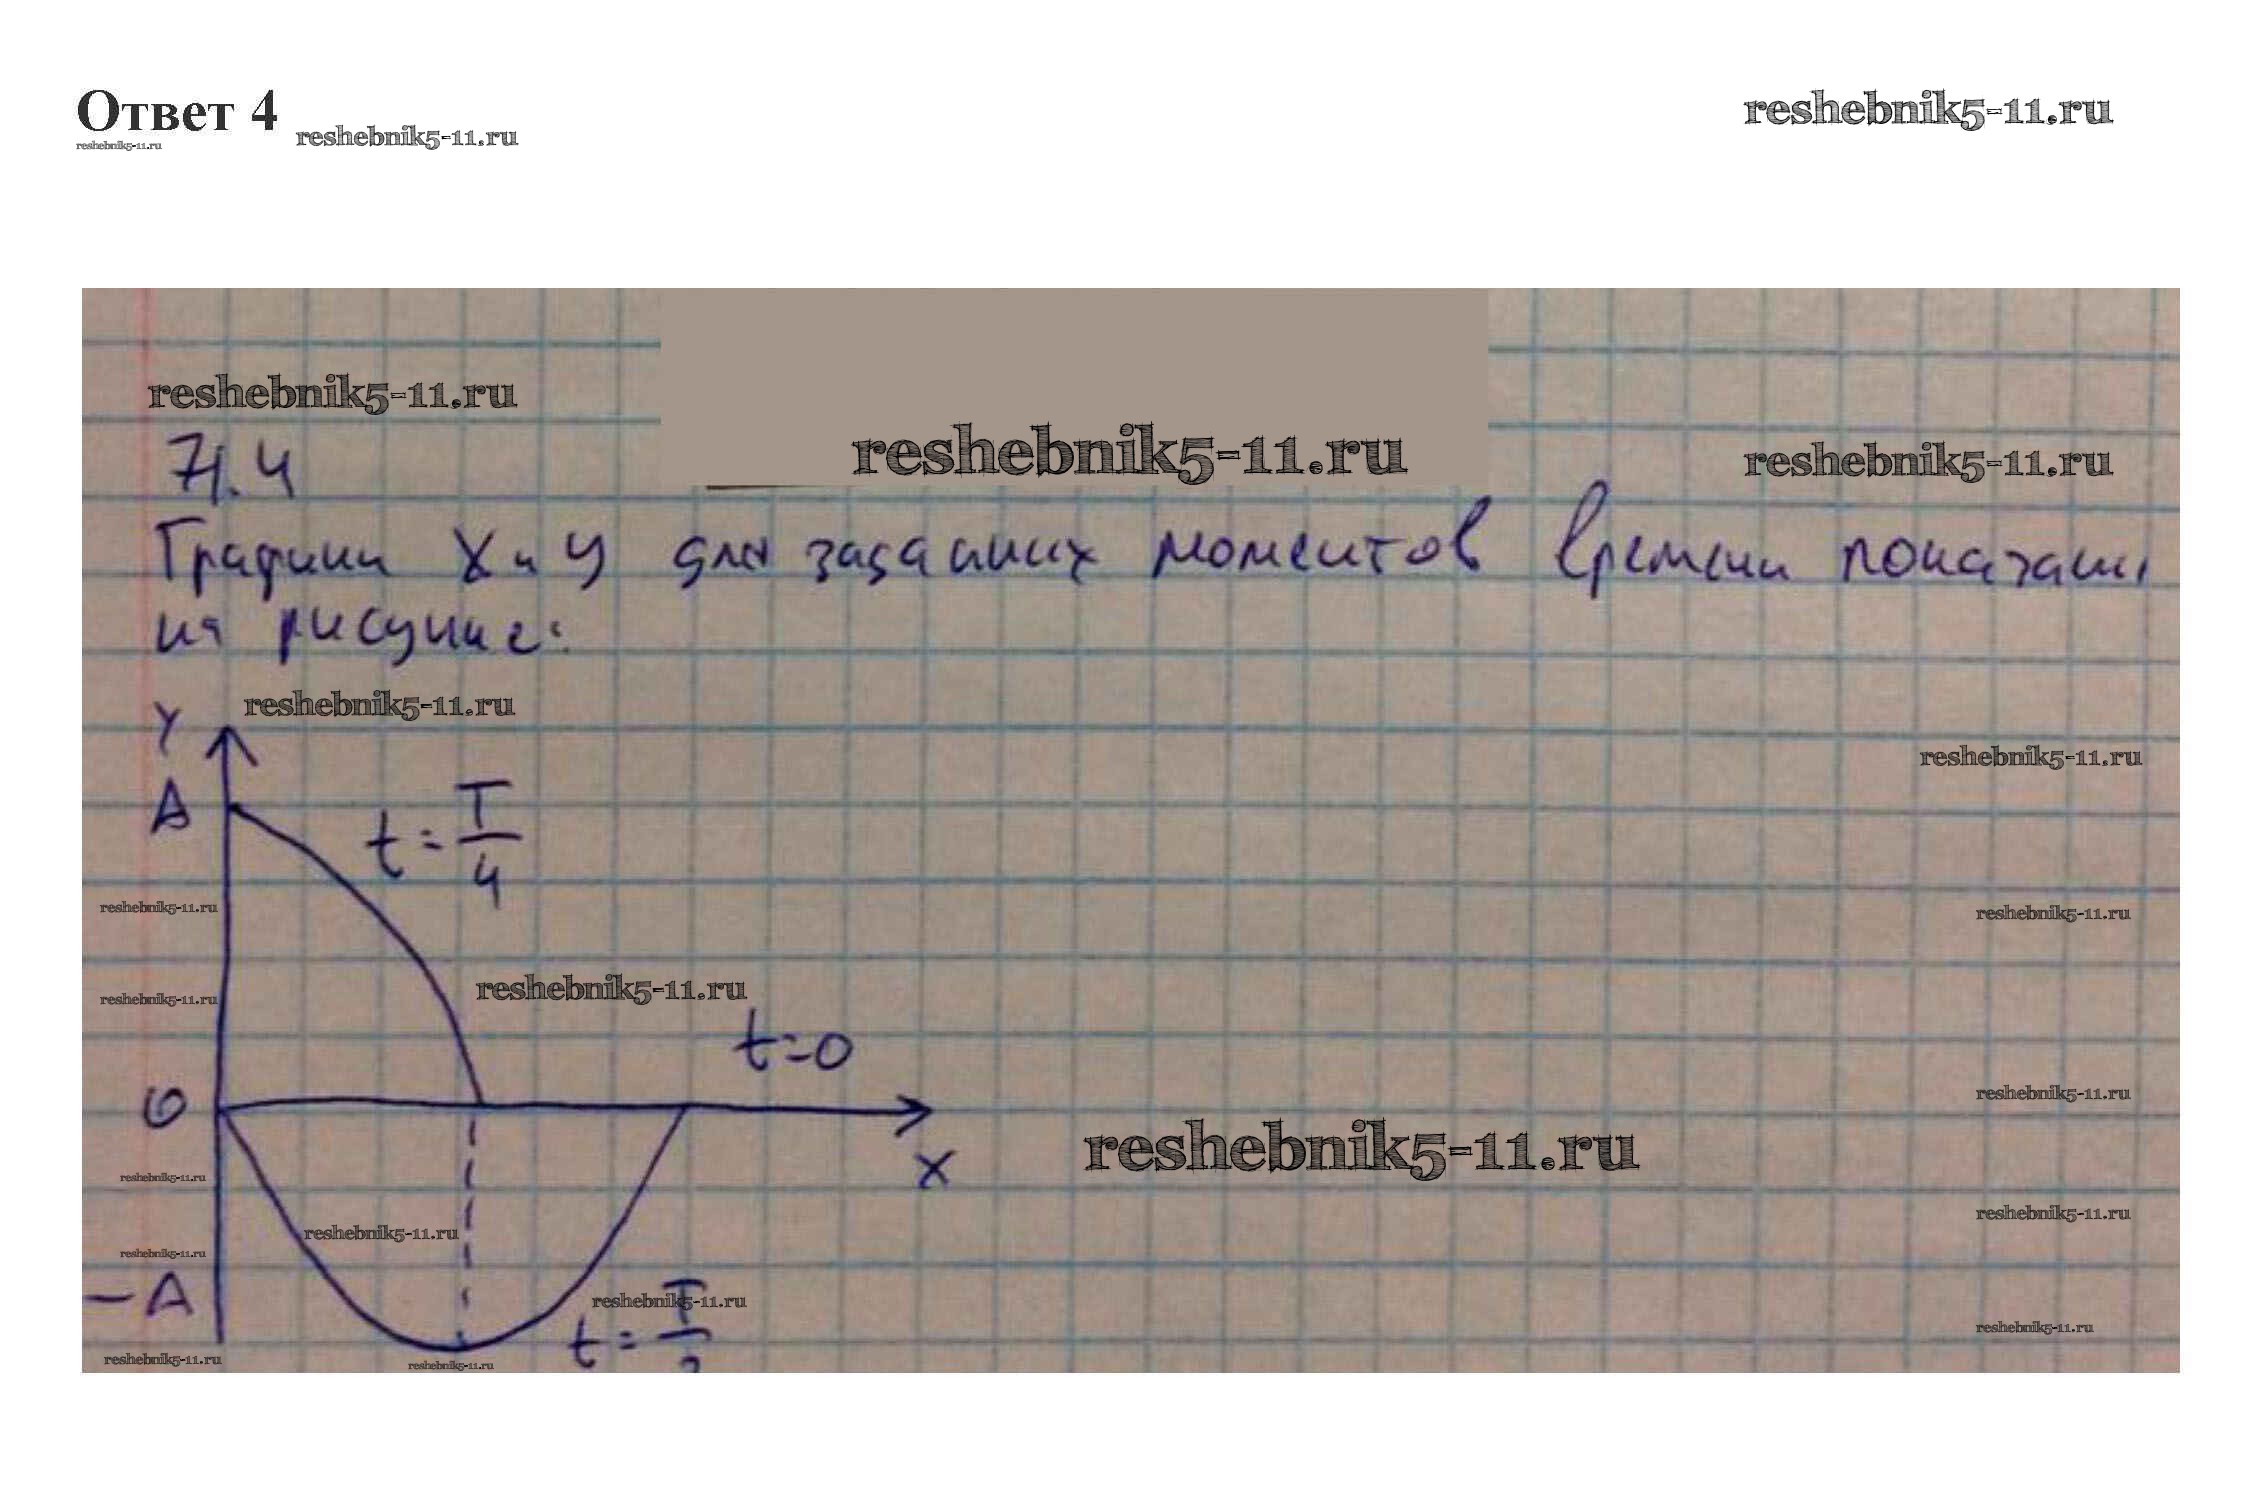 Ответ 4
reshebnik5-11.ru
reshebnik5-11.ru
reshebnik5-11.ru
reshebnik5-11.ru
reshebnik5-11.ru
reshebnik5-11.ru
71.4
Графики X и Y для заданных моментов времени показаны
на рисунке:
reshebnik5-11.ru
Y
reshebnik5-11.ru
A
t = T/4
reshebnik5-11.ru
reshebnik5-11.ru
reshebnik5-11.ru
reshebnik5-11.ru
t=0
reshebnik5-11.ru
0
reshebnik5-11.ru
X
reshebnik5-11.ru
reshebnik5-11.ru
reshebnik5-11.ru
reshebnik5-11.ru
-A
reshebnik5-11.ru
t = T/2
reshebnik5-11.ru
reshebnik5-11.ru
reshebnik5-11.ru